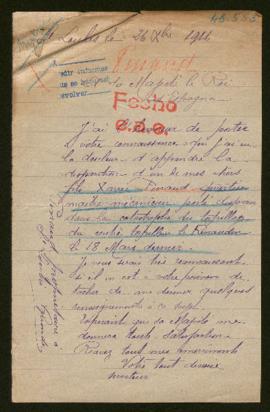 48.555
le 26 Xbre 1916
Pinaud
Sa Majesté le Roi
d'Espagne
Fecho
J'ai l'honneur de porter
à votre connaissance que j'ai eu
la douleur d'apprendre la
disparition d'un de mes chers
fils Xavier Pinaud quartier
maître mécanicien porté disparu
dans la catastrophe du torpilleur
du contre torpilleur le Renaudin
le 18 Mars dernier.
Je vous serais très reconnaissant
si il en est à votre pouvoir de
tâcher de me donner quelques
renseignements à ce sujet
Espérant que sa Majesté me
donnera toute satisfaction
Recevez tout mes remerciements
Votre tout dévoué
serviteur